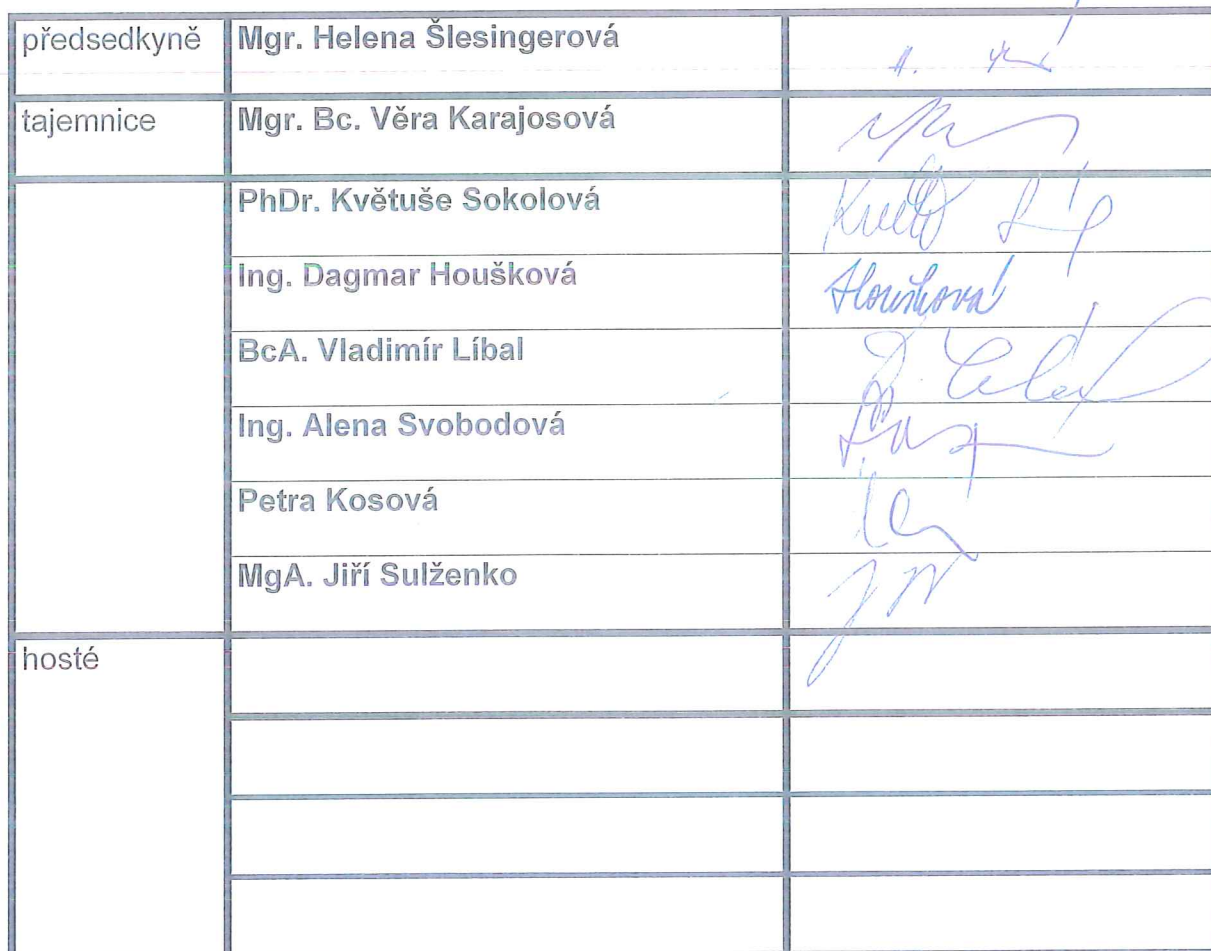 předsedkyně Mgr. Helena Šlesingerová
tajemnice Mgr. Bc. Věra Karajosová
PhDr. Květuše Sokolová
Ing. Dagmar Houšková Houšková
BcA. Vladimír Líbal
Ing. Alena Svobodová
Petra Kosová
MgA. Jiří Sulženko
hosté